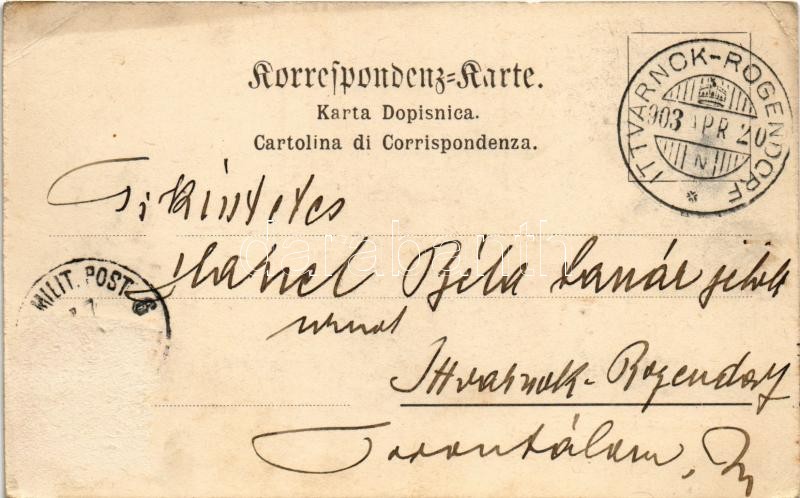 Korrespondenz=Karte.
Karta Dopisnica.
Cartolina di Corrispondenza.
ITTVARNOK-ROGENDORF
903 APR 20
N
MILIT. POST
Béla tanár jelölt
urnak
Ittvarnok-Rogendorf
Torontálm.
darabanth